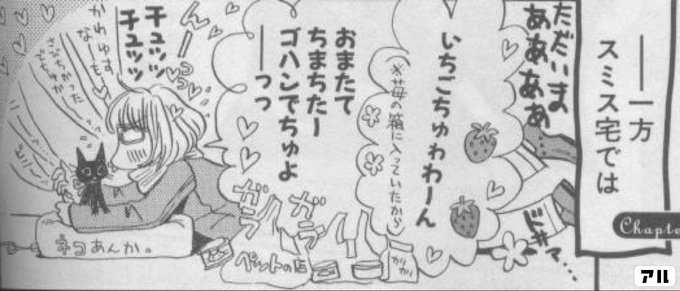 ――一方
スミス宅では
Chapte
ただいま
ああああ
ドサァ…
いちごちゅわわーん
※苺の箱に入っていたから
おまたて
ちまちたー
ゴハンでちゅよ
――っっ
ガラ
ガラ
ペットの店
カリカリ
んーっ
チュッッ
チュッッ
かわゆす
なーも
さびちかった
でちゅか
ネコあんか。
アル